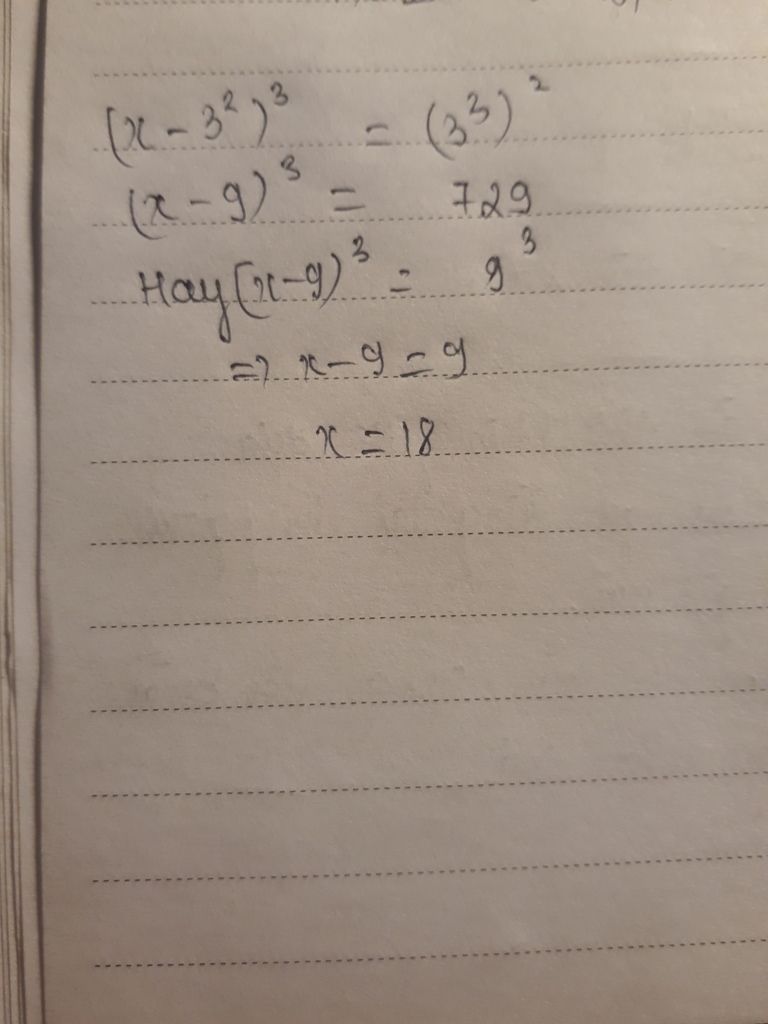 (x - 3²)³ = (3³)²
(x - 9)³ = 729
Hay (x - 9)³ = 9³
=> x - 9 = 9
x = 18